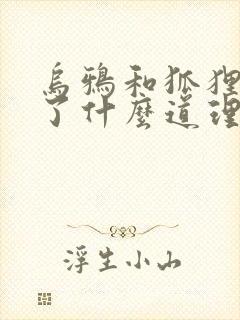 烏鴉和狐狸
了什麼道理
浮生小山